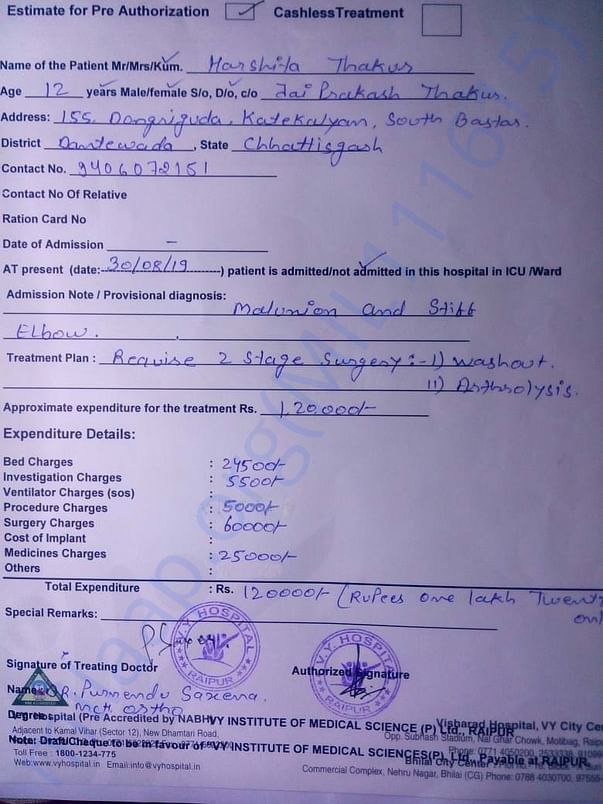 Estimate for Pre Authorization ✓ Cashless Treatment
Name of the Patient Mr/Mrs/Kum. Harshita Thakur
Age 12 years Male/female S/o, D/o, c/o Jai Prakash Thakur.
Address: 155, Dongriguda, Katekalyan, South Bastar.
District Dantewada, State Chhattisgarh
Contact No. 9406072151
Contact No Of Relative
Ration Card No
Date of Admission –
AT present (date:- 30/08/19 -) patient is admitted/not admitted in this hospital in ICU /Ward
Admission Note / Provisional diagnosis:
Malunion and Stiff
Elbow.
Treatment Plan : Require 2 Stage Surgery :- I) Washout.
II) Arthrolysis.
Approximate expenditure for the treatment Rs. 1,20,000/-
Expenditure Details:
Bed Charges : 24500/-
Investigation Charges : 5500/-
Ventilator Charges (sos) :
Procedure Charges : 5000/-
Surgery Charges : 60000/-
Cost of Implant :
Medicines Charges : 25000/-
Others :
Total Expenditure : Rs. 120000/- (Rupees one lakh Twenty
Special Remarks:
V.Y. HOSPITAL RAIPUR
V.Y. HOSPITAL RAIPUR
Signature of Treating Doctor Authorized Signature
Name DR. Purnendu Saxena.
Degree Mch ortho
Hospital (Pre Accredited by NABH) VY INSTITUTE OF MEDICAL SCIENCE (P) Ltd., RAIPUR
Visharad Hospital, VY City Cen
Adjacent to Kamal Vihar (Sector 12), New Dhamtari Road,
Opp. Subhash Stadium, Nal Ghar Chowk, Motibag, Raip
Note: Draft/Cheque to be in favour of VY INSTITUTE OF MEDICAL SCIENCES(P) Ltd., Payable at RAIPUR.
Phone: 0771 4050200,
Toll Free : 1800-1234-775
Bhilai City Center
Web:www.vyhospital.in Email:info@vyhospital.in
Commercial Complex, Nehru Nagar, Bhilai (CG) Phone: 0788 4030700,